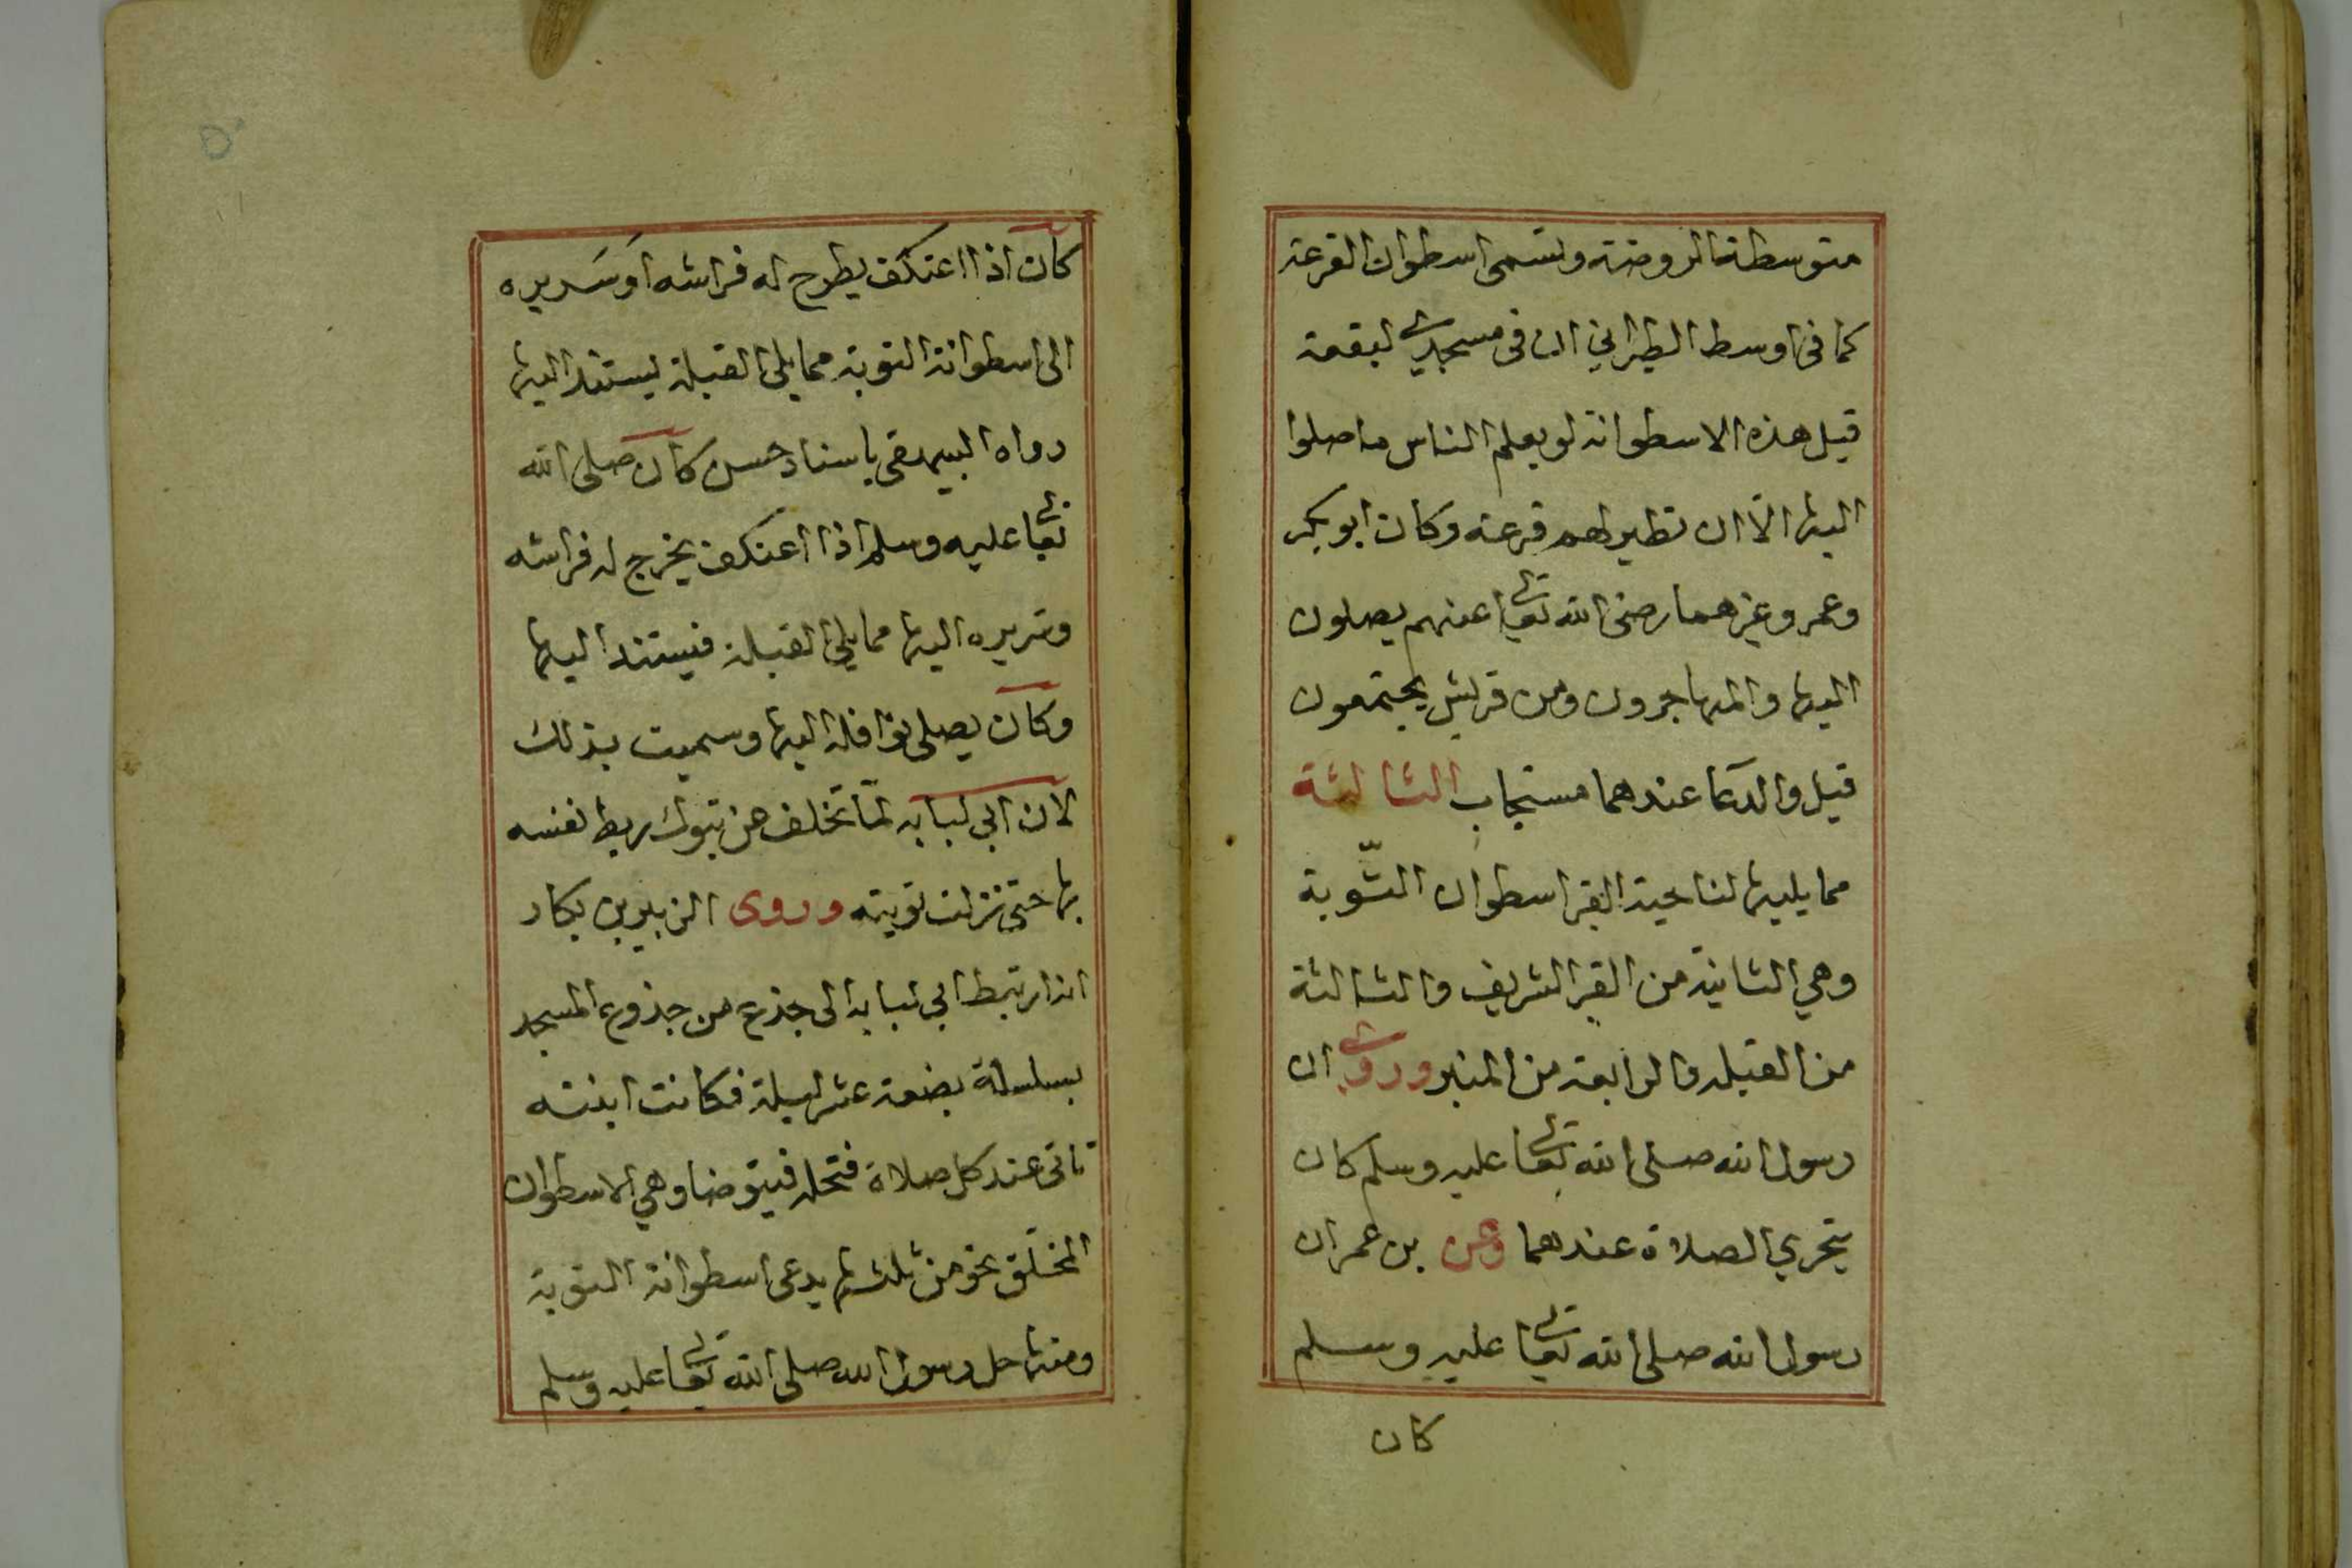 متوسطة الروضة وتسمى اسطوان القرعة
كما فى اوسط الطبراني ان فى مسجدي لبقعة
قيل هذه الاسطوانة لو يعلم الناس ما صلوا
اليها الّا ان تطير لهم قرعة وكان ابو بكر
وعمر وغيرهما رضى الله تعالى عنهم يصلون
اليها والمهاجرون ومن قريش يجتمعون
قيل والدعا عندهما مستجاب الثالثة
مما يليها لناحية القبر اسطوان التّوبة
وهي الثانية من القبر الشريف والثالثة
من القبله والرابعة من المنبر وروي ان
رسول الله صلى الله تعالى عليه وسلم كان
يتحري الصلاة عندهما وعن بن عمر ان
رسول الله صلى الله تعالى عليه وسلم
كان
كان اذا اعتكف يطرح له فراشه او سَريره
الى اسطوانة التوبة مما يلي القبلة ليستند اليها
رواه البيهقى باسناد حسن كان صلى الله
تعالى عليه وسلم اذا اعتكف يخرج له فراشه
وسريره اليها مما يلي القبلة فيستند اليها
وكان يصلى نوافله اليها وسميت بذلك
لان ابي لبابه لمّا تخلف عن تبوك ربط نفسه
بها حتى نزلت توبته وروى الزبير بن بكار
ان ارتبط ابي لبابة الى جذع من جذوع المسجد
بسلسلة بضعة عشر ليلة فكانت ابنته
تاتى عند كل صلاة فتحله فيتوضا وهي الاسطوان
المخلّق نحو من ثلثها يدعى اسطوانة التوبة
ومنها حل رسول الله صلى الله تعالى عليه وسلم